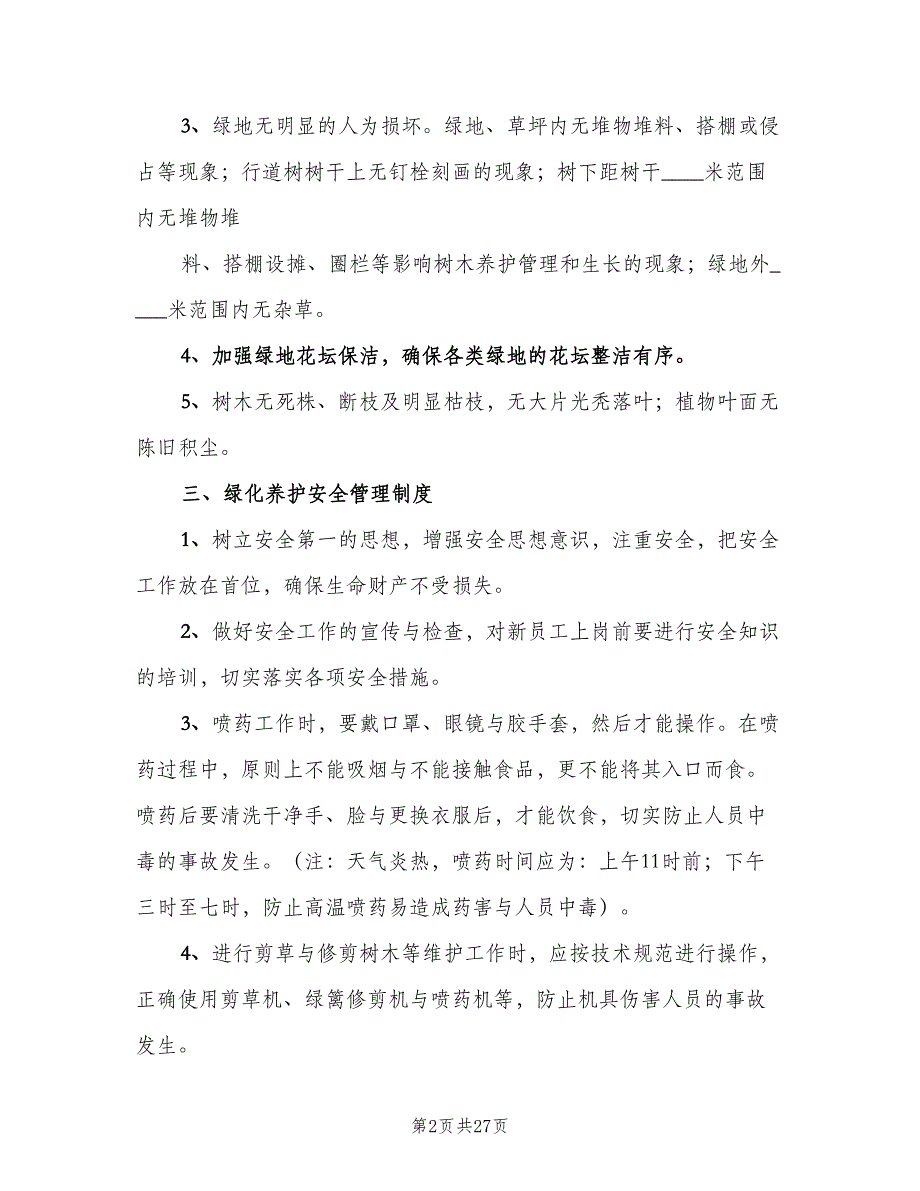 3、绿地无明显的人为损坏。绿地、草坪内无堆物堆料、搭棚或侵
占等现象；行道树树干上无钉栓刻画的现象；树下距树干____米范围
内无堆物堆
料、搭棚设摊、圈栏等影响树木养护管理和生长的现象；绿地外_
___米范围内无杂草。
4、加强绿地花坛保洁，确保各类绿地的花坛整洁有序。
5、树木无死株、断枝及明显枯枝，无大片光秃落叶；植物叶面无
陈旧积尘。
三、绿化养护安全管理制度
1、树立安全第一的思想，增强安全思想意识，注重安全，把安全
工作放在首位，确保生命财产不受损失。
2、做好安全工作的宣传与检查，对新员工上岗前要进行安全知识
的培训，切实落实各项安全措施。
3、喷药工作时，要戴口罩、眼镜与胶手套，然后才能操作。在喷
药过程中，原则上不能吸烟与不能接触食品，更不能将其入口而食。
喷药后要清洗干净手、脸与更换衣服后，才能饮食，切实防止人员中
毒的事故发生。（注：天气炎热，喷药时间应为：上午11时前；下午
三时至七时，防止高温喷药易造成药害与人员中毒）。
4、进行剪草与修剪树木等维护工作时，应按技术规范进行操作，
正确使用剪草机、绿篱修剪机与喷药机等，防止机具伤害人员的事故
发生。
第2页共27页